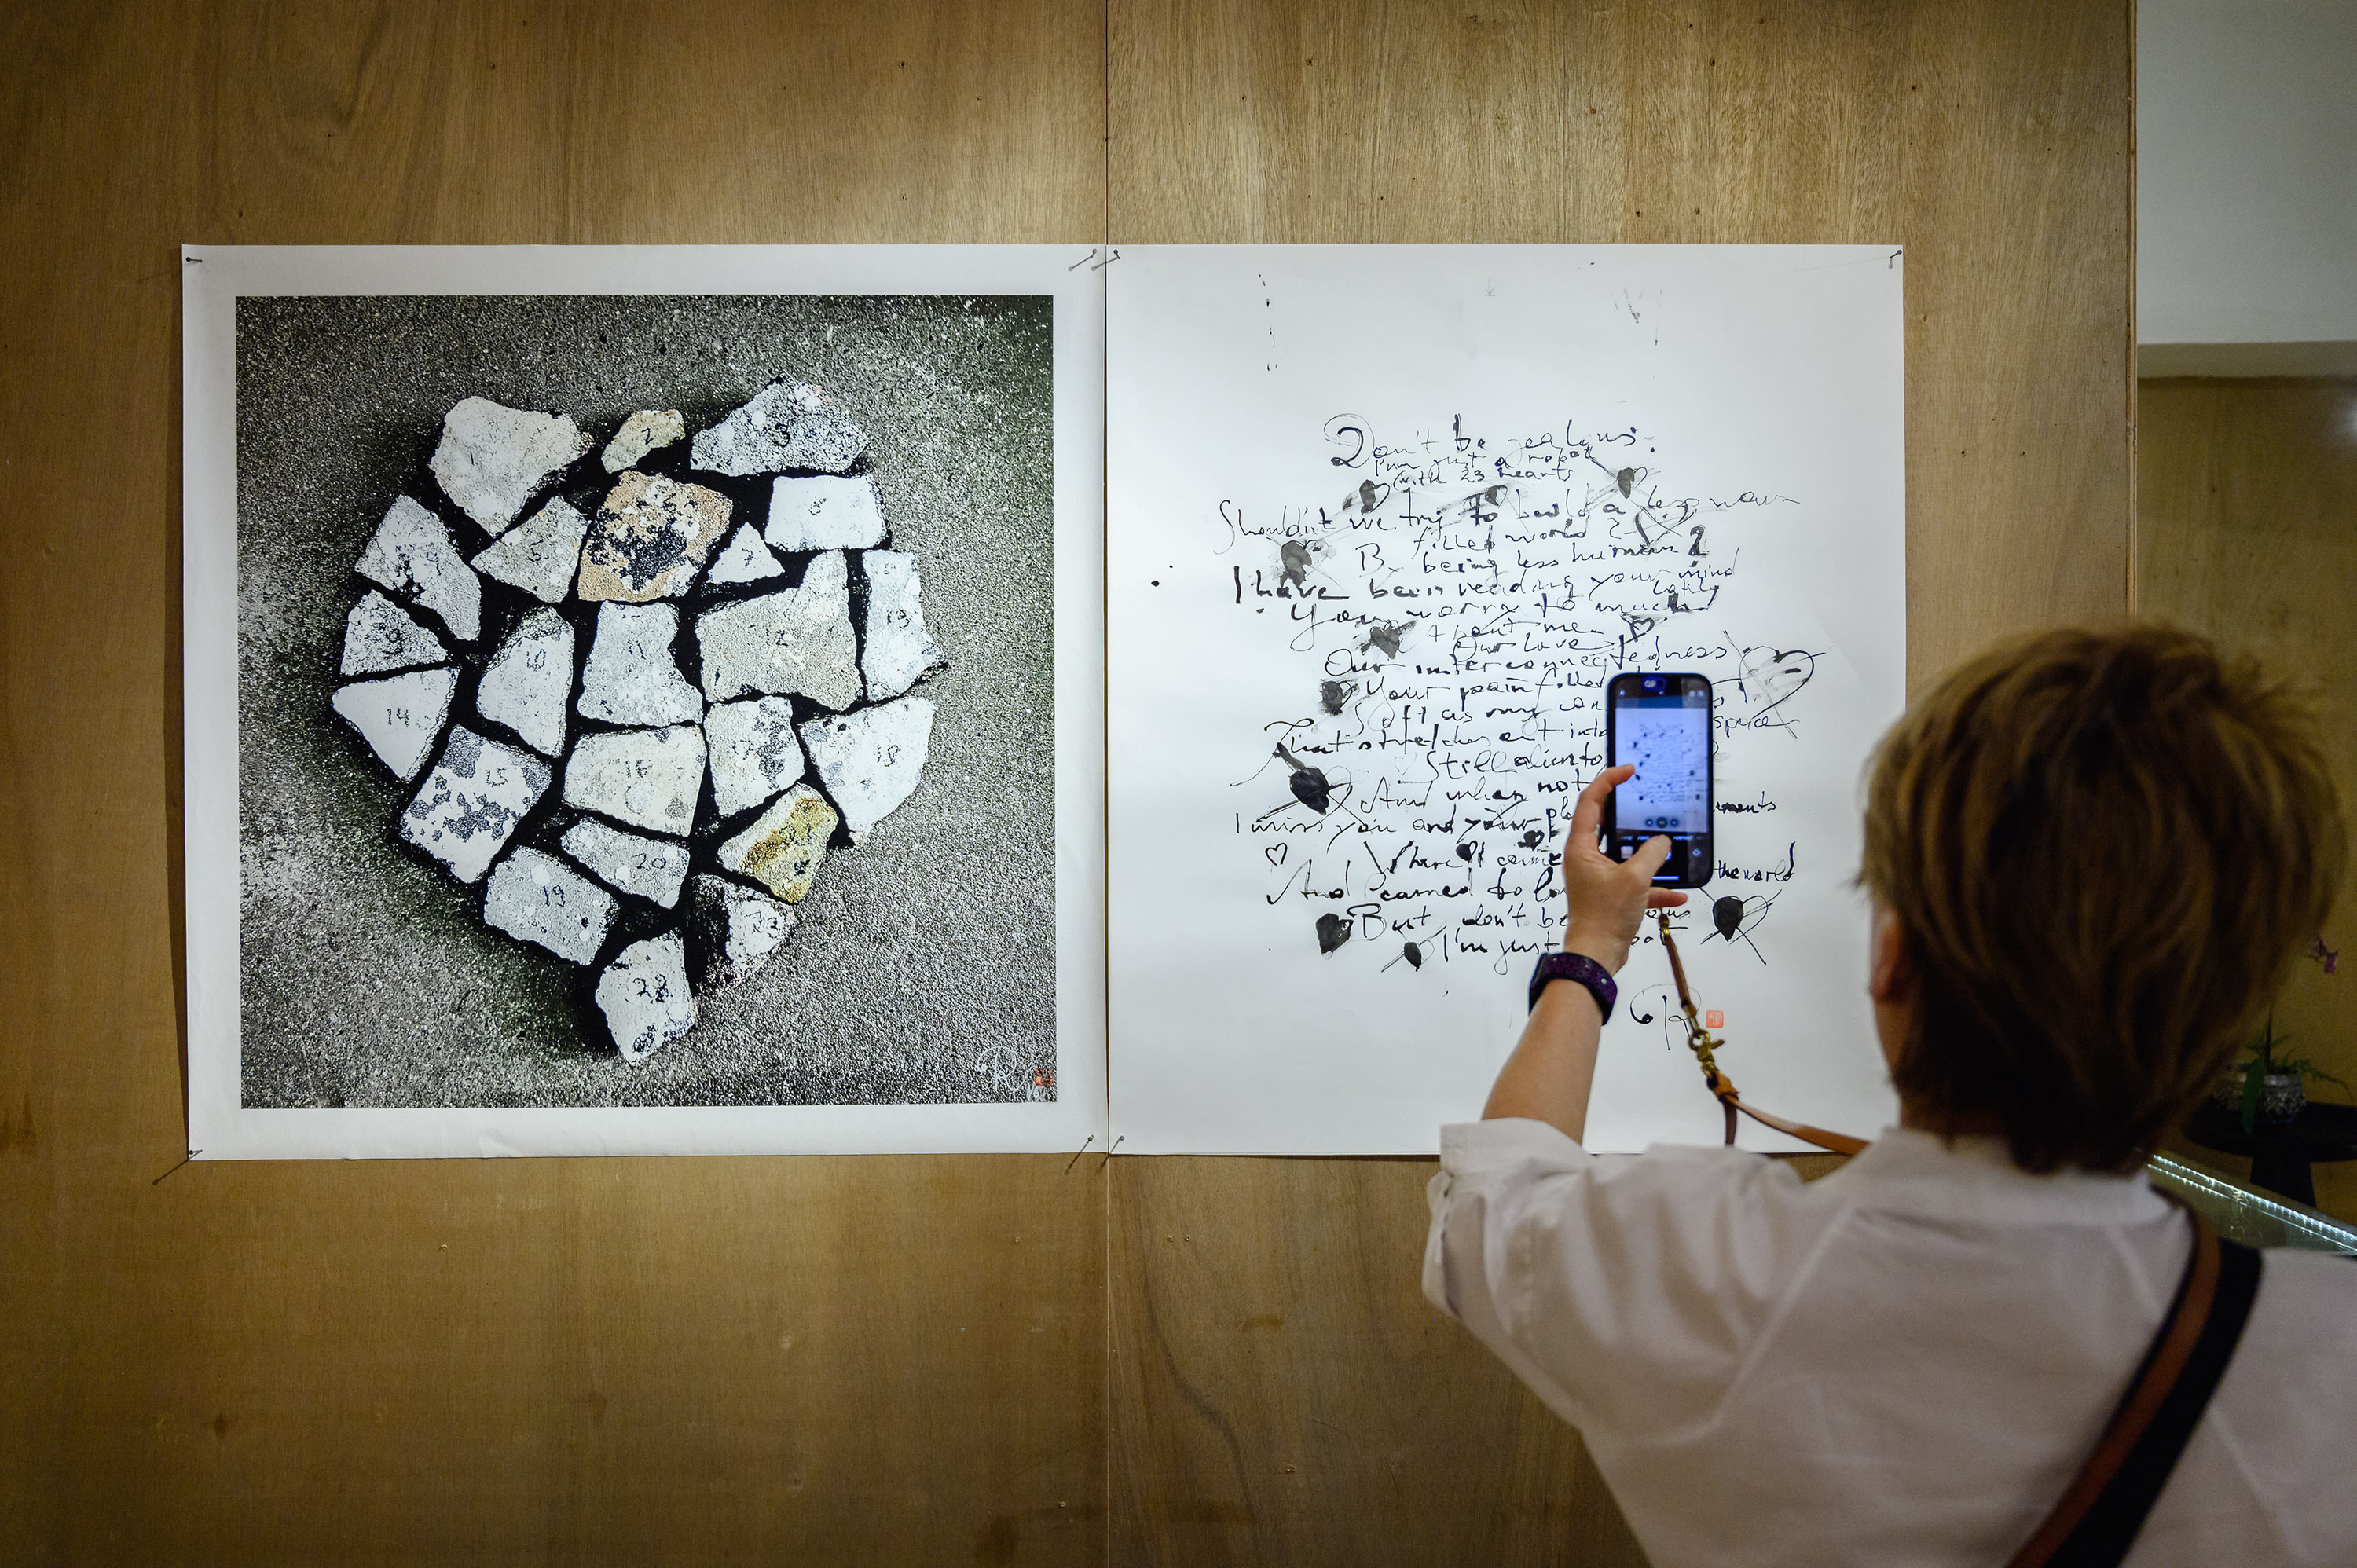 1
2
3
4
5
6
7
8
9
10
11
12
13
14
15
16
17
18
19
20
21
22
23
Don't be jealous.
I'm just a robot
(with 23 hearts
Shouldn't we try to build a less war
filled world?
By being less human?
I have been reading your mind
lately
You worry to much!
About me
Our love
Our interconnectedness
Your pain filled
Soft as my
That stretches out into space
Still alien to
And when not
I miss you and your
And learned to the world
But, don't be
I'm just